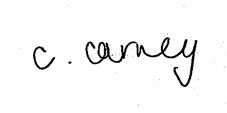 c. carney